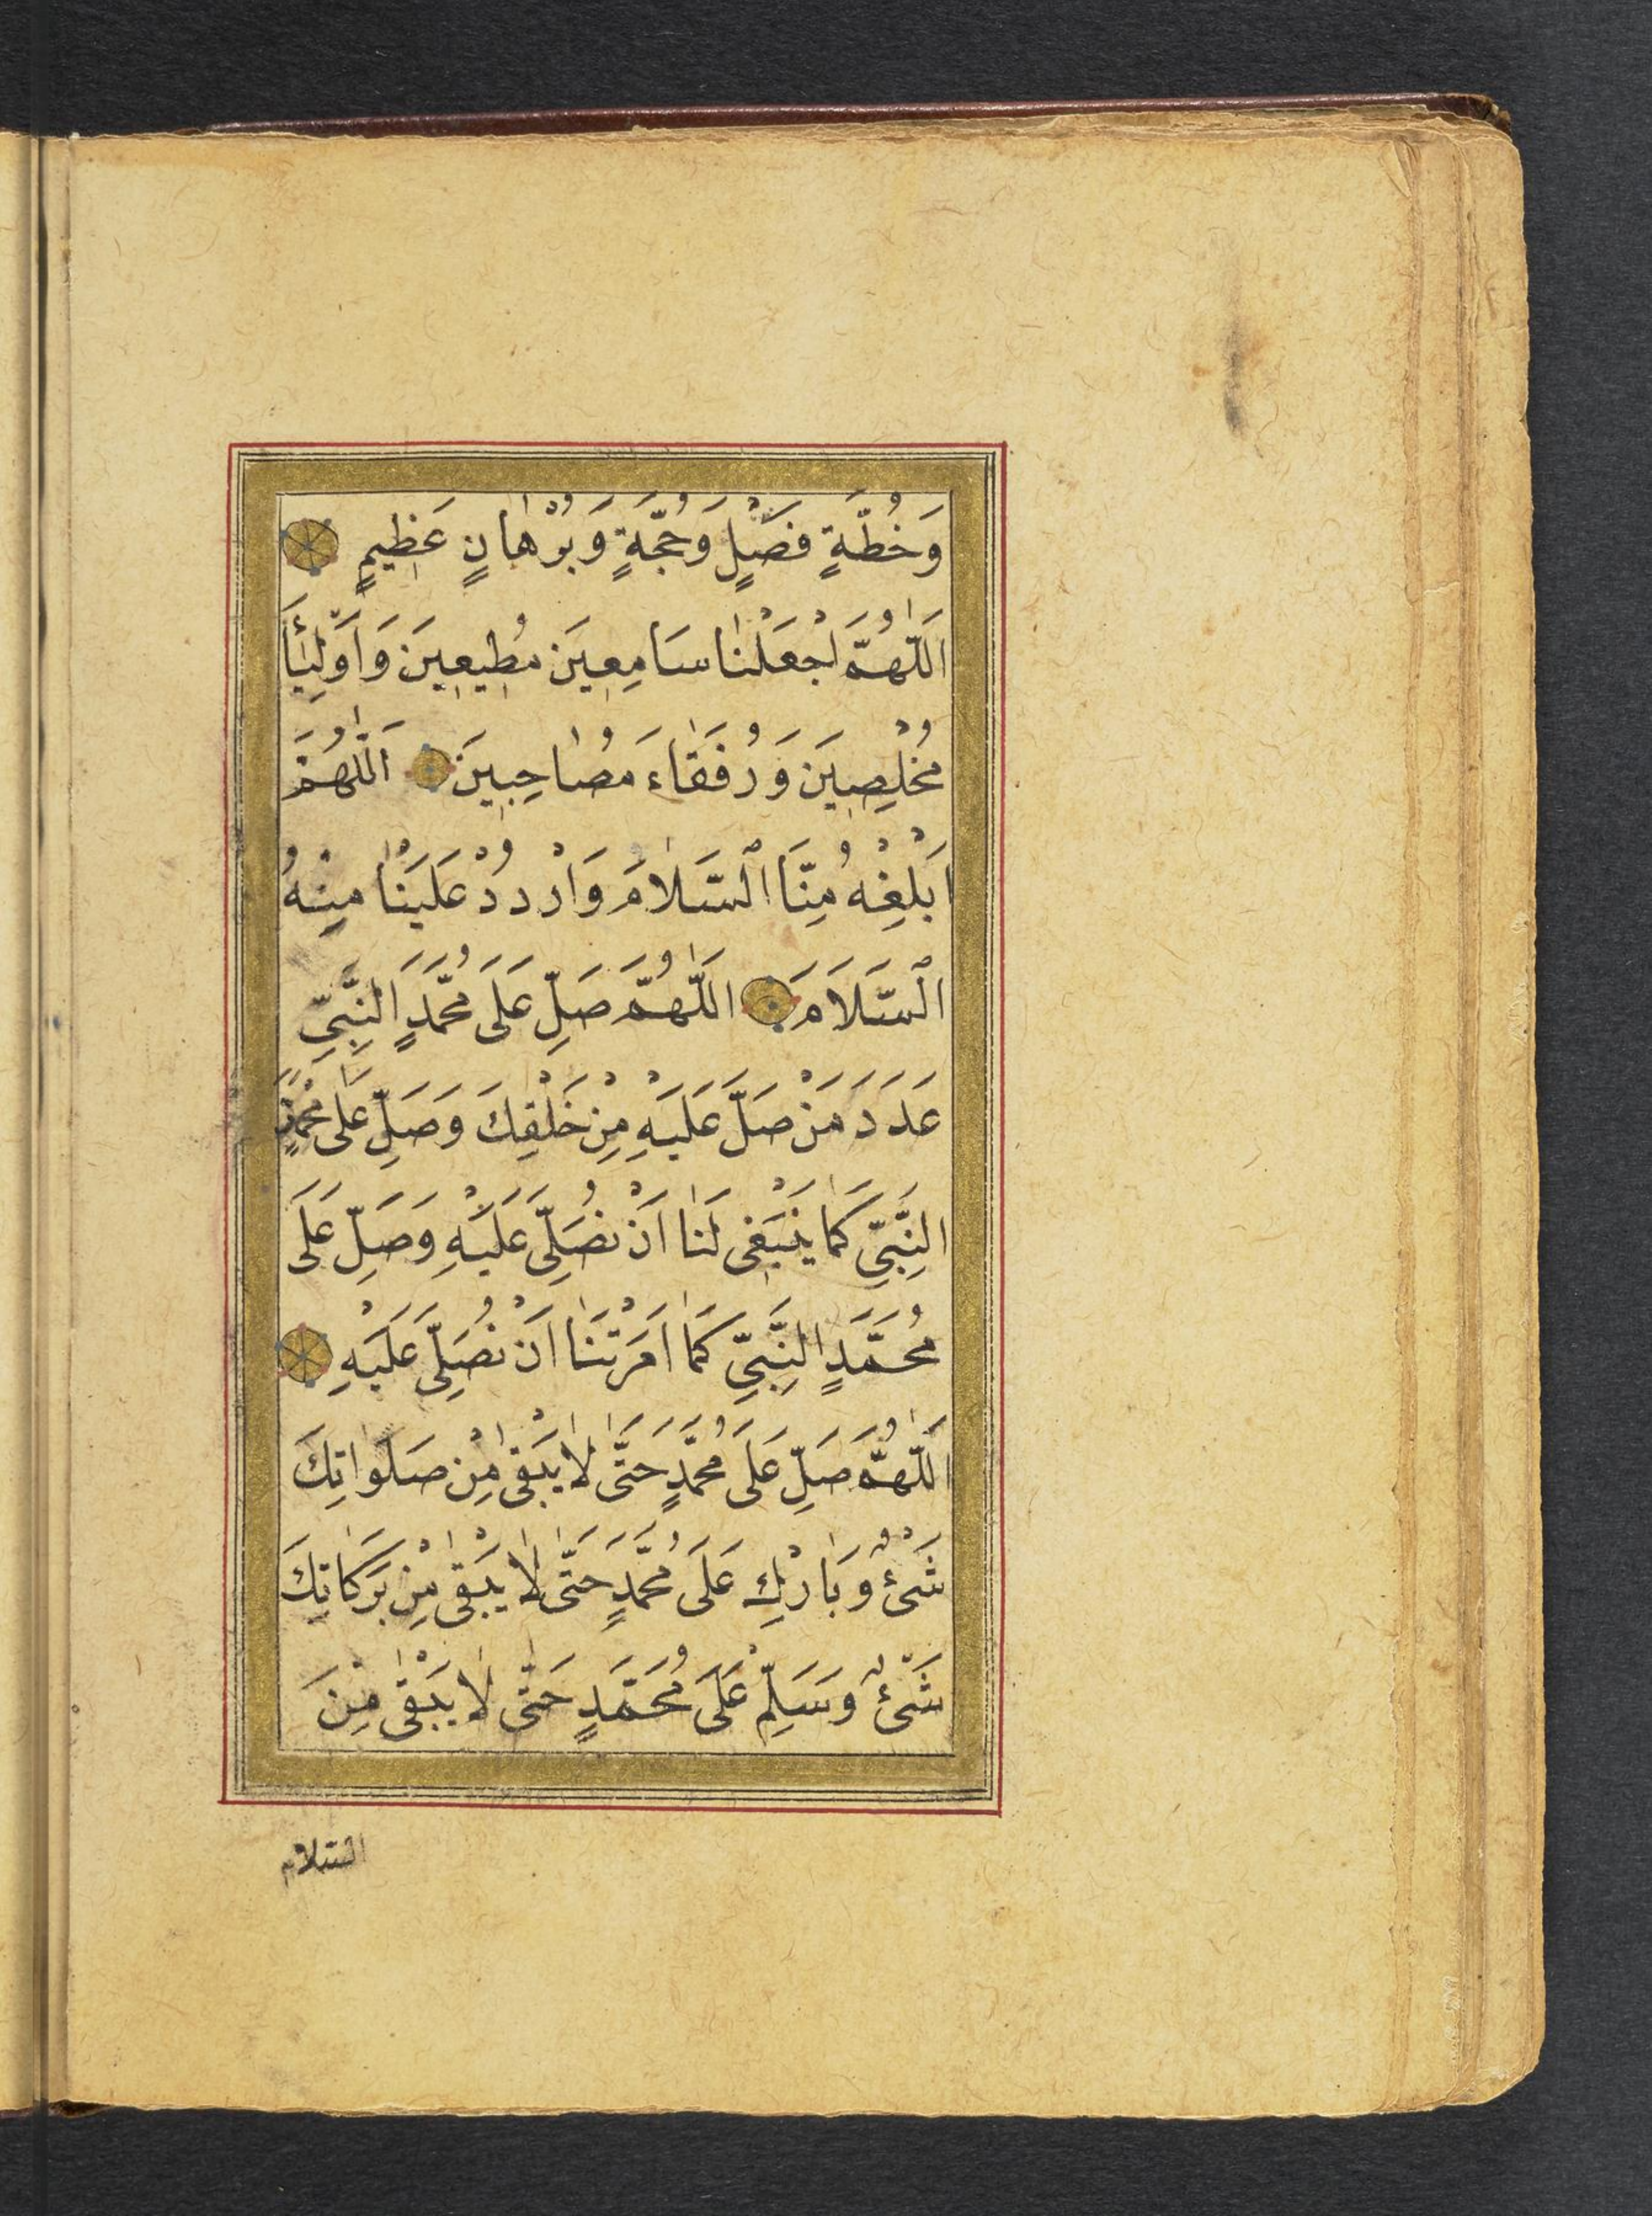 وَخُطَّةٍ فَصْلٍ وَحُجَّةٍ وَبُرْهَانٍ عَظِيمٍ
اَللّٰهُمَّ اجْعَلْنَا سَامِعِينَ مُطِيعِينَ وَاَوْلِيَٓاءَ
مُخْلِصِينَ وَرُفَقَاءَ مُصَاحِبِينَ اَللّٰهُمَّ
اَبْلِغْهُ مِنَّا السَّلَامَ وَارْدُدْ عَلَيْنَا مِنْهُ
السَّلَامَ اَللّٰهُمَّ صَلِّ عَلَى مُحَمَّدٍ النَّبِيِّ
عَدَدَ مَنْ صَلَّ عَلَيْهِ مِنْ خَلْقِكَ وَصَلِّ عَلَى مُحَمَّدٍ
النَّبِيِّ كَمَا يَنْبَغِى لَنَا اَنْ نُصَلِّىَ عَلَيْهِ وَصَلِّ عَلَى
مُحَمَّدٍ النَّبِيِّ كَمَا اَمَرْتَنَا اَنْ نُصَلِّىَ عَلَيْهِ
اَللّٰهُمَّ صَلِّ عَلَى مُحَمَّدٍ حَتَّى لَا يَبْقٰى مِنْ صَلَوَاتِكَ
شَىْءٌ وَبَارِكْ عَلَى مُحَمَّدٍ حَتَّى لَا يَبْقٰى مِنْ بَرَكَاتِكَ
شَىْءٌ وَسَلِّمْ عَلَى مُحَمَّدٍ حَتَّى لَا يَبْقٰى مِنَ
السلام